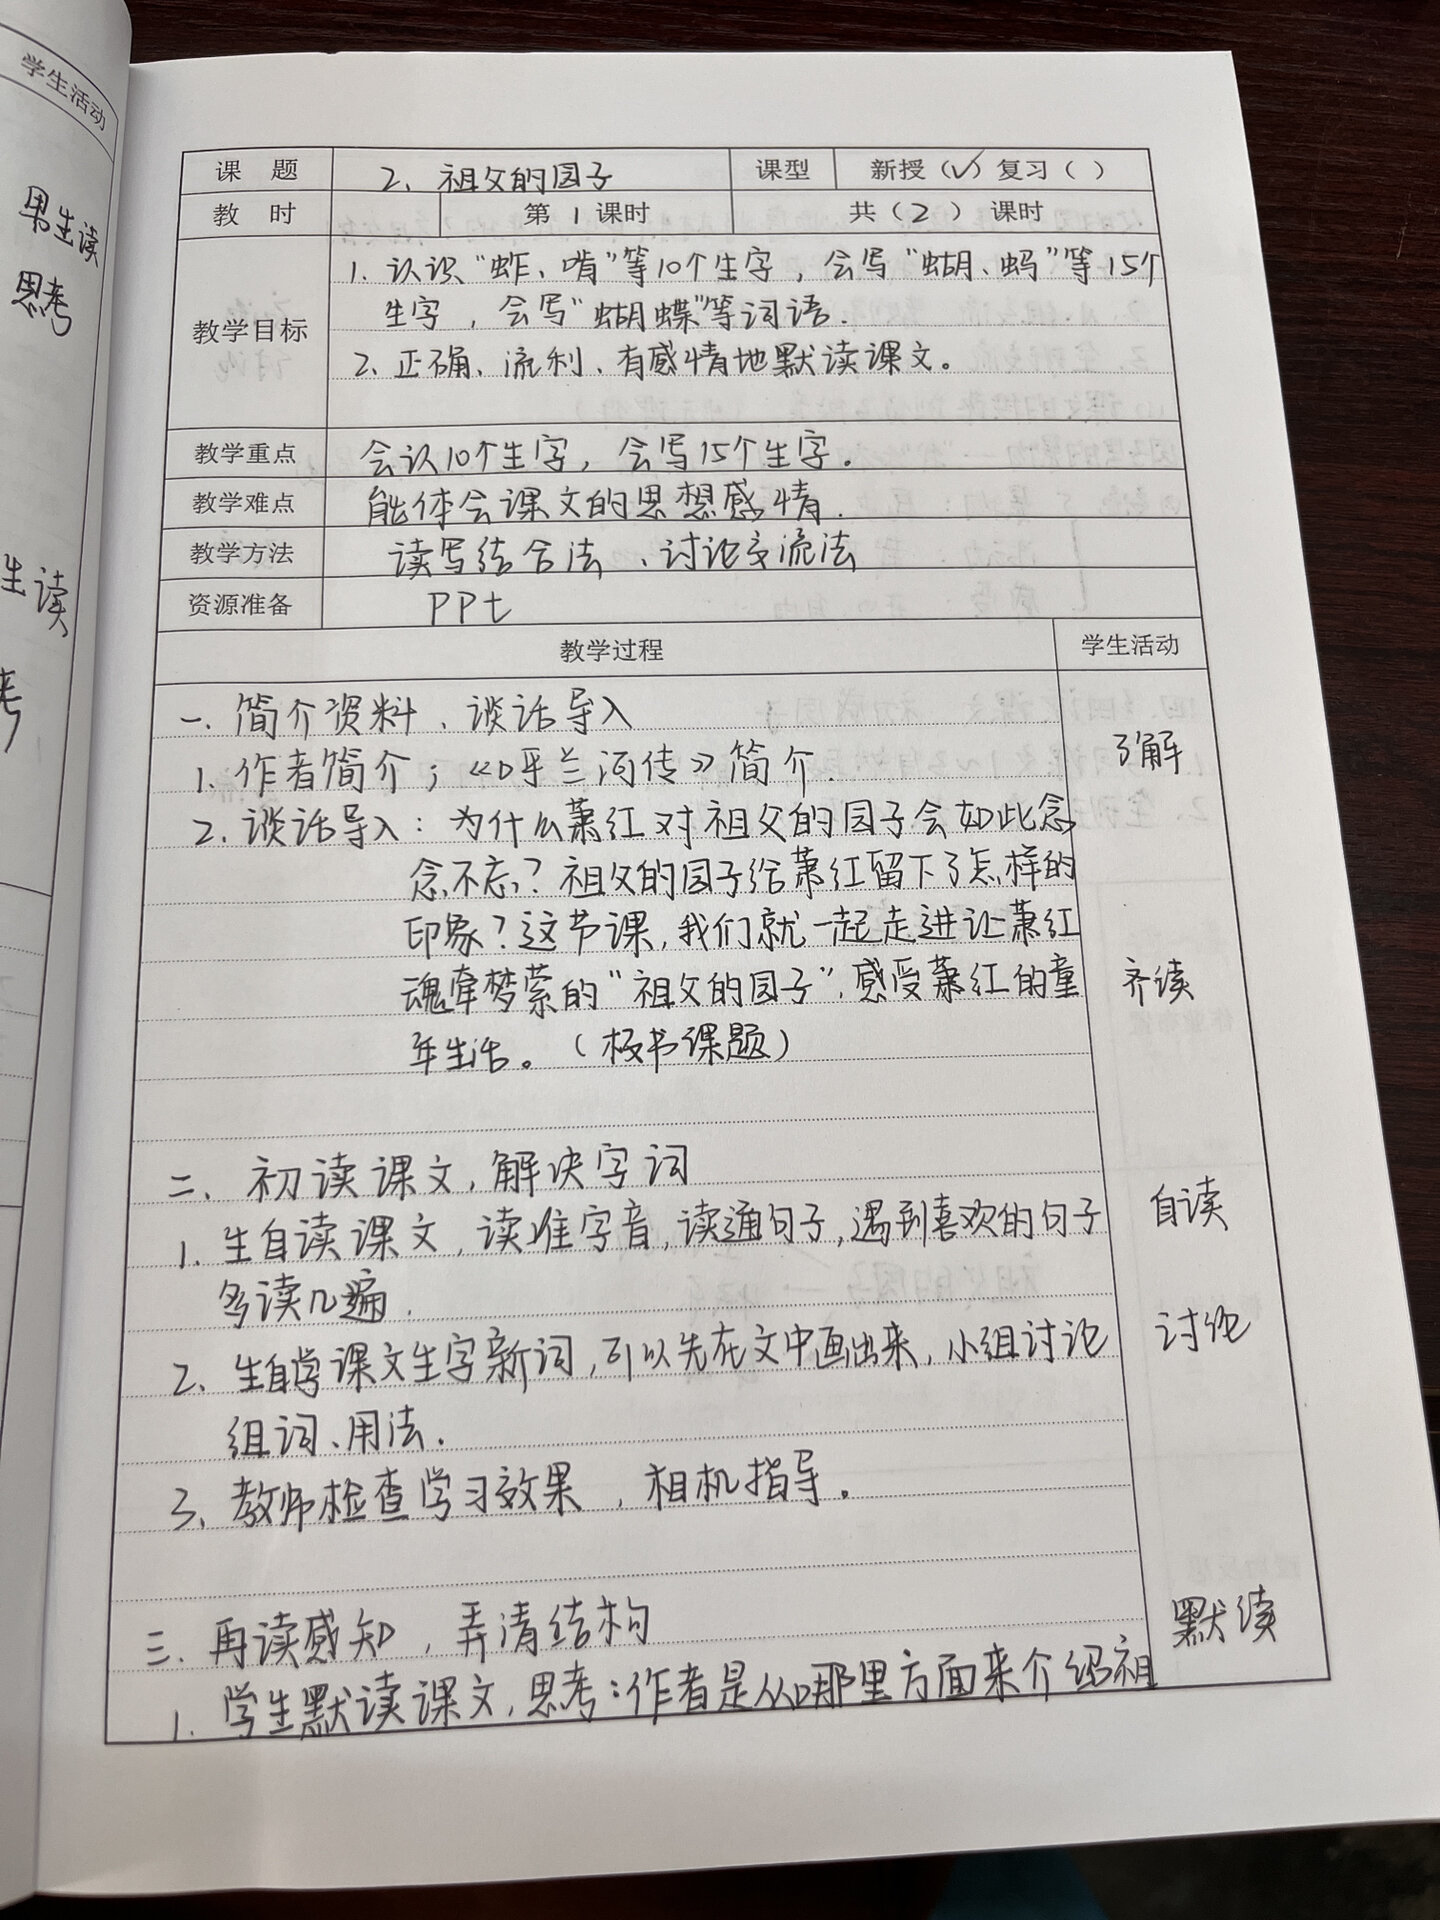 学生活动
男生读
思考
生读
考
课 题 2、祖父的园子 课型 新授(✓)复习( )
教 时 第 1 课时 共(2)课时
教学目标
1. 认识“蚱、啃”等10个生字，会写“蝴、蚂”等15个
生字，会写“蝴蝶”等词语.
2、正确、流利、有感情地默读课文。
教学重点 会认10个生字，会写15个生字.
教学难点 能体会课文的思想感情.
教学方法 读写结合法、讨论交流法
资源准备 PPt
教学过程 学生活动
一. 简介资料、谈话导入
1. 作者简介；《呼兰河传》简介. 了解
2. 谈话导入：为什么萧红对祖父的园子会如此念
念不忘？祖父的园子给萧红留下了怎样的
印象？这节课，我们就一起走进让萧红
魂牵梦萦的“祖父的园子”，感受萧红的童 齐读
年生活。（板书课题）
二、初读课文，解决字词
1. 生自读课文，读准字音，读通句子，遇到喜欢的句子 自读
多读几遍.
2、生自学课文生字新词，可以先在文中画出来，小组讨论 讨论
组词、用法.
3、教师检查学习效果，相机指导。
三、再读感知，弄清结构 默读
1. 学生默读课文，思考：作者是从哪里方面来介绍祖